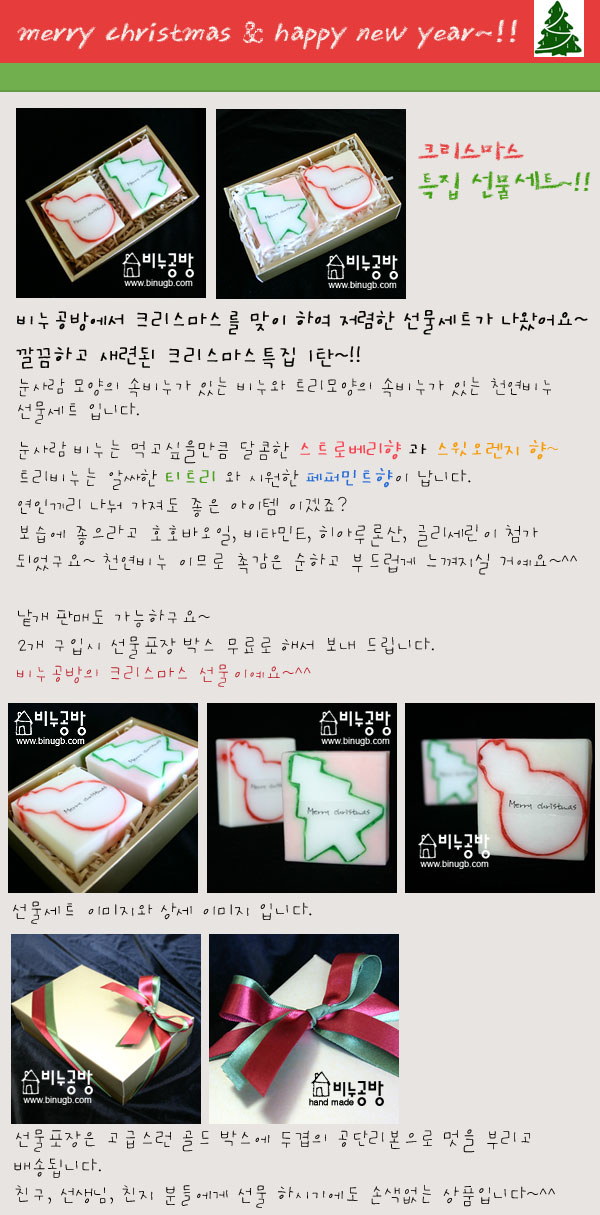 merry christmas & happy new year~!!
크리스마스
특집 선물세트~!!
Merry christmas
Merry christmas
비누공방
www.binugb.com
Merry christmas
Merry christmas
비누공방
www.binugb.com
비누공방에서 크리스마스를 맞이 하여 저렴한 선물세트가 나왔어요~
깔끔하고 새련된 크리스마스특집 1탄~!!
눈사람 모양의 속비누가 있는 비누와 트리모양의 속비누가 있는 천연비누
선물세트 입니다.
눈사람 비누는 먹고싶을만큼 달콤한 스트로베리향 과 스윗오렌지 향~
트리비누는 알싸한 티트리 와 시원한 페퍼민트향이 납니다.
연인끼리 나눠 가져도 좋은 아이템 이겠죠?
보습에 좋으라고 호호바오일, 비타민E, 히아루론산, 글리세린이 첨가
되었구요~ 천연비누 이므로 촉감은 순하고 부드럽게 느껴지실 거예요~^^
낱개 판매도 가능하구요~
2개 구입시 선물포장 박스 무료로 해서 보내 드립니다.
비누공방의 크리스마스 선물이예요~^^
비누공방
www.binugb.com
Merry christmas
Merry christmas
비누공방
www.binugb.com
Merry christmas
Merry christmas
Merry christmas
Merry christmas
비누공방
www.binugb.com
선물세트 이미지와 상세 이미지 입니다.
비누공방
www.binugb.com
비누공방
hand made
선물포장은 고급스런 골드 박스에 두겹의 공단리본으로 멋을 부리고
배송됩니다.
친구, 선생님, 친지 분들에게 선물 하시기에도 손색없는 상품입니다~^^